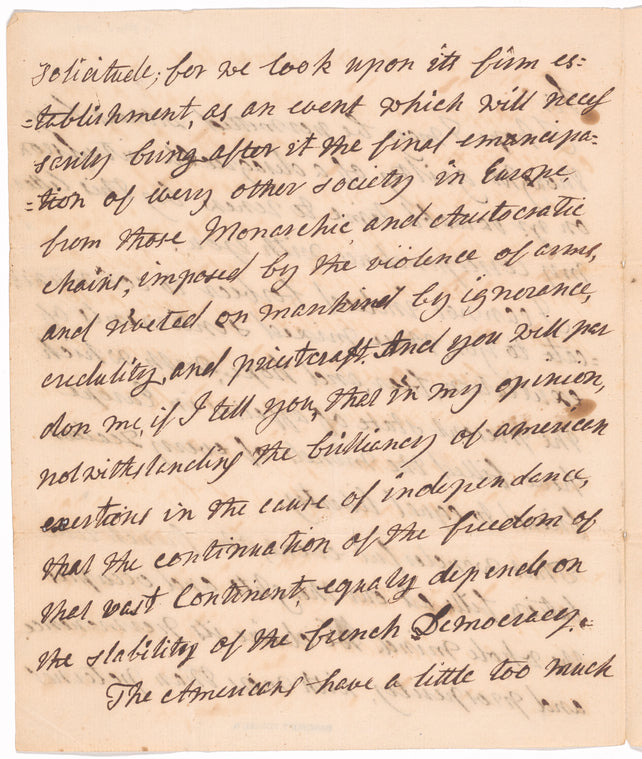 solicitude; for we look upon its firm es-
-tablishment, as an event which will necess
sarily bring after it the final emancipa-
-tion of every other society in Europe
from those Monarchic and Aristocratic
chains, imposed by the violence of arms,
and riveted on mankind by ignorance,
credulity, and priestcraft. And you will par
don me, if I tell you, that in my opinion,
notwithstanding the brilliancy of american
exertions in the cause of independance,
that the continuation of the freedom of
that vast Continent, equaly depends on
the stability of the french Democracy.
The Americans have a little too much